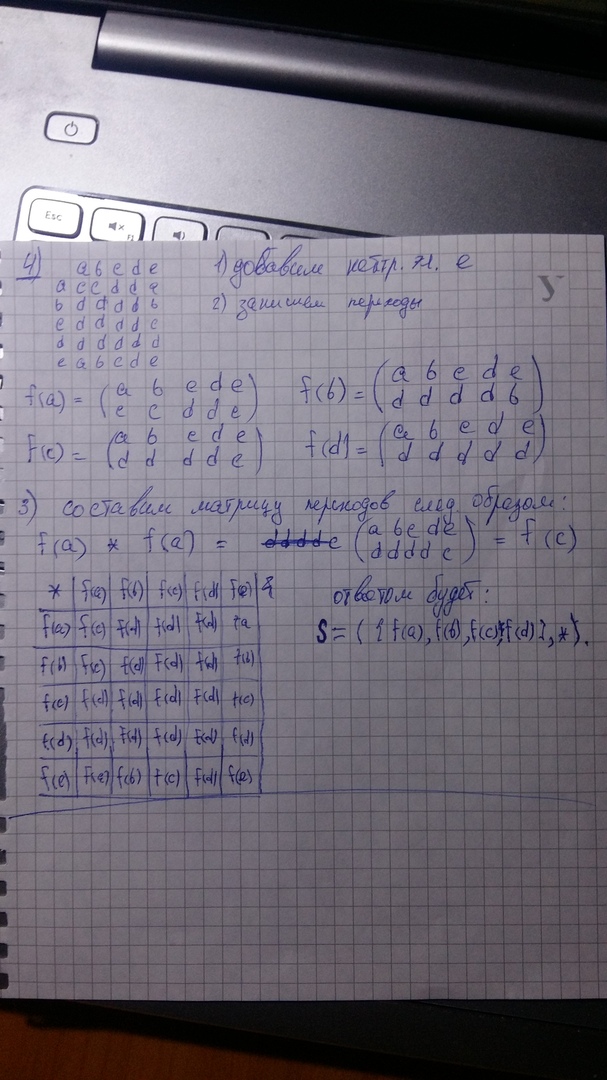 Esc
F1
4) a b c d e
a c c d d a
b d d d d b
c d d d d c
d d d d d d
e a b c d e
1) добавим нейтр. эл. e
2) запишем переходы
У
f(a) = (a b c d e
c c d d e)
f(b) = (a b c d e
d d d d b)
f(c) = (a b c d e
d d d d c)
f(d) = (a b c d e
d d d d d)
3) составим матрицу переходов след. образом:
f(a) * f(a) = (a b c d e
d d d d c) = f(c)
* f(a) f(b) f(c) f(d) f(e)
f(a) f(c) f(d) f(d) f(d) fa
f(b) f(c) f(d) f(d) f(d) f(b)
f(c) f(d) f(d) f(d) f(d) f(c)
f(d) f(d) f(d) f(d) f(d) f(d)
f(e) f(a) f(b) f(c) f(d) f(e)
ответом будет:
S = ( { f(a), f(b), f(c), f(d) }, * ).